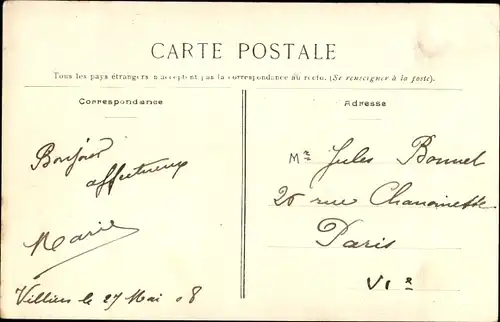 CARTE POSTALE
Tous les pays étrangers n'acceptent pas la correspondance au recto. (Se renseigner à la poste).
Correspondance
Bonjour
affectueux
Marie
Villiers le 27 Mai 08
Adresse
Mr Jules Bonnet
26 rue
Paris
VIe